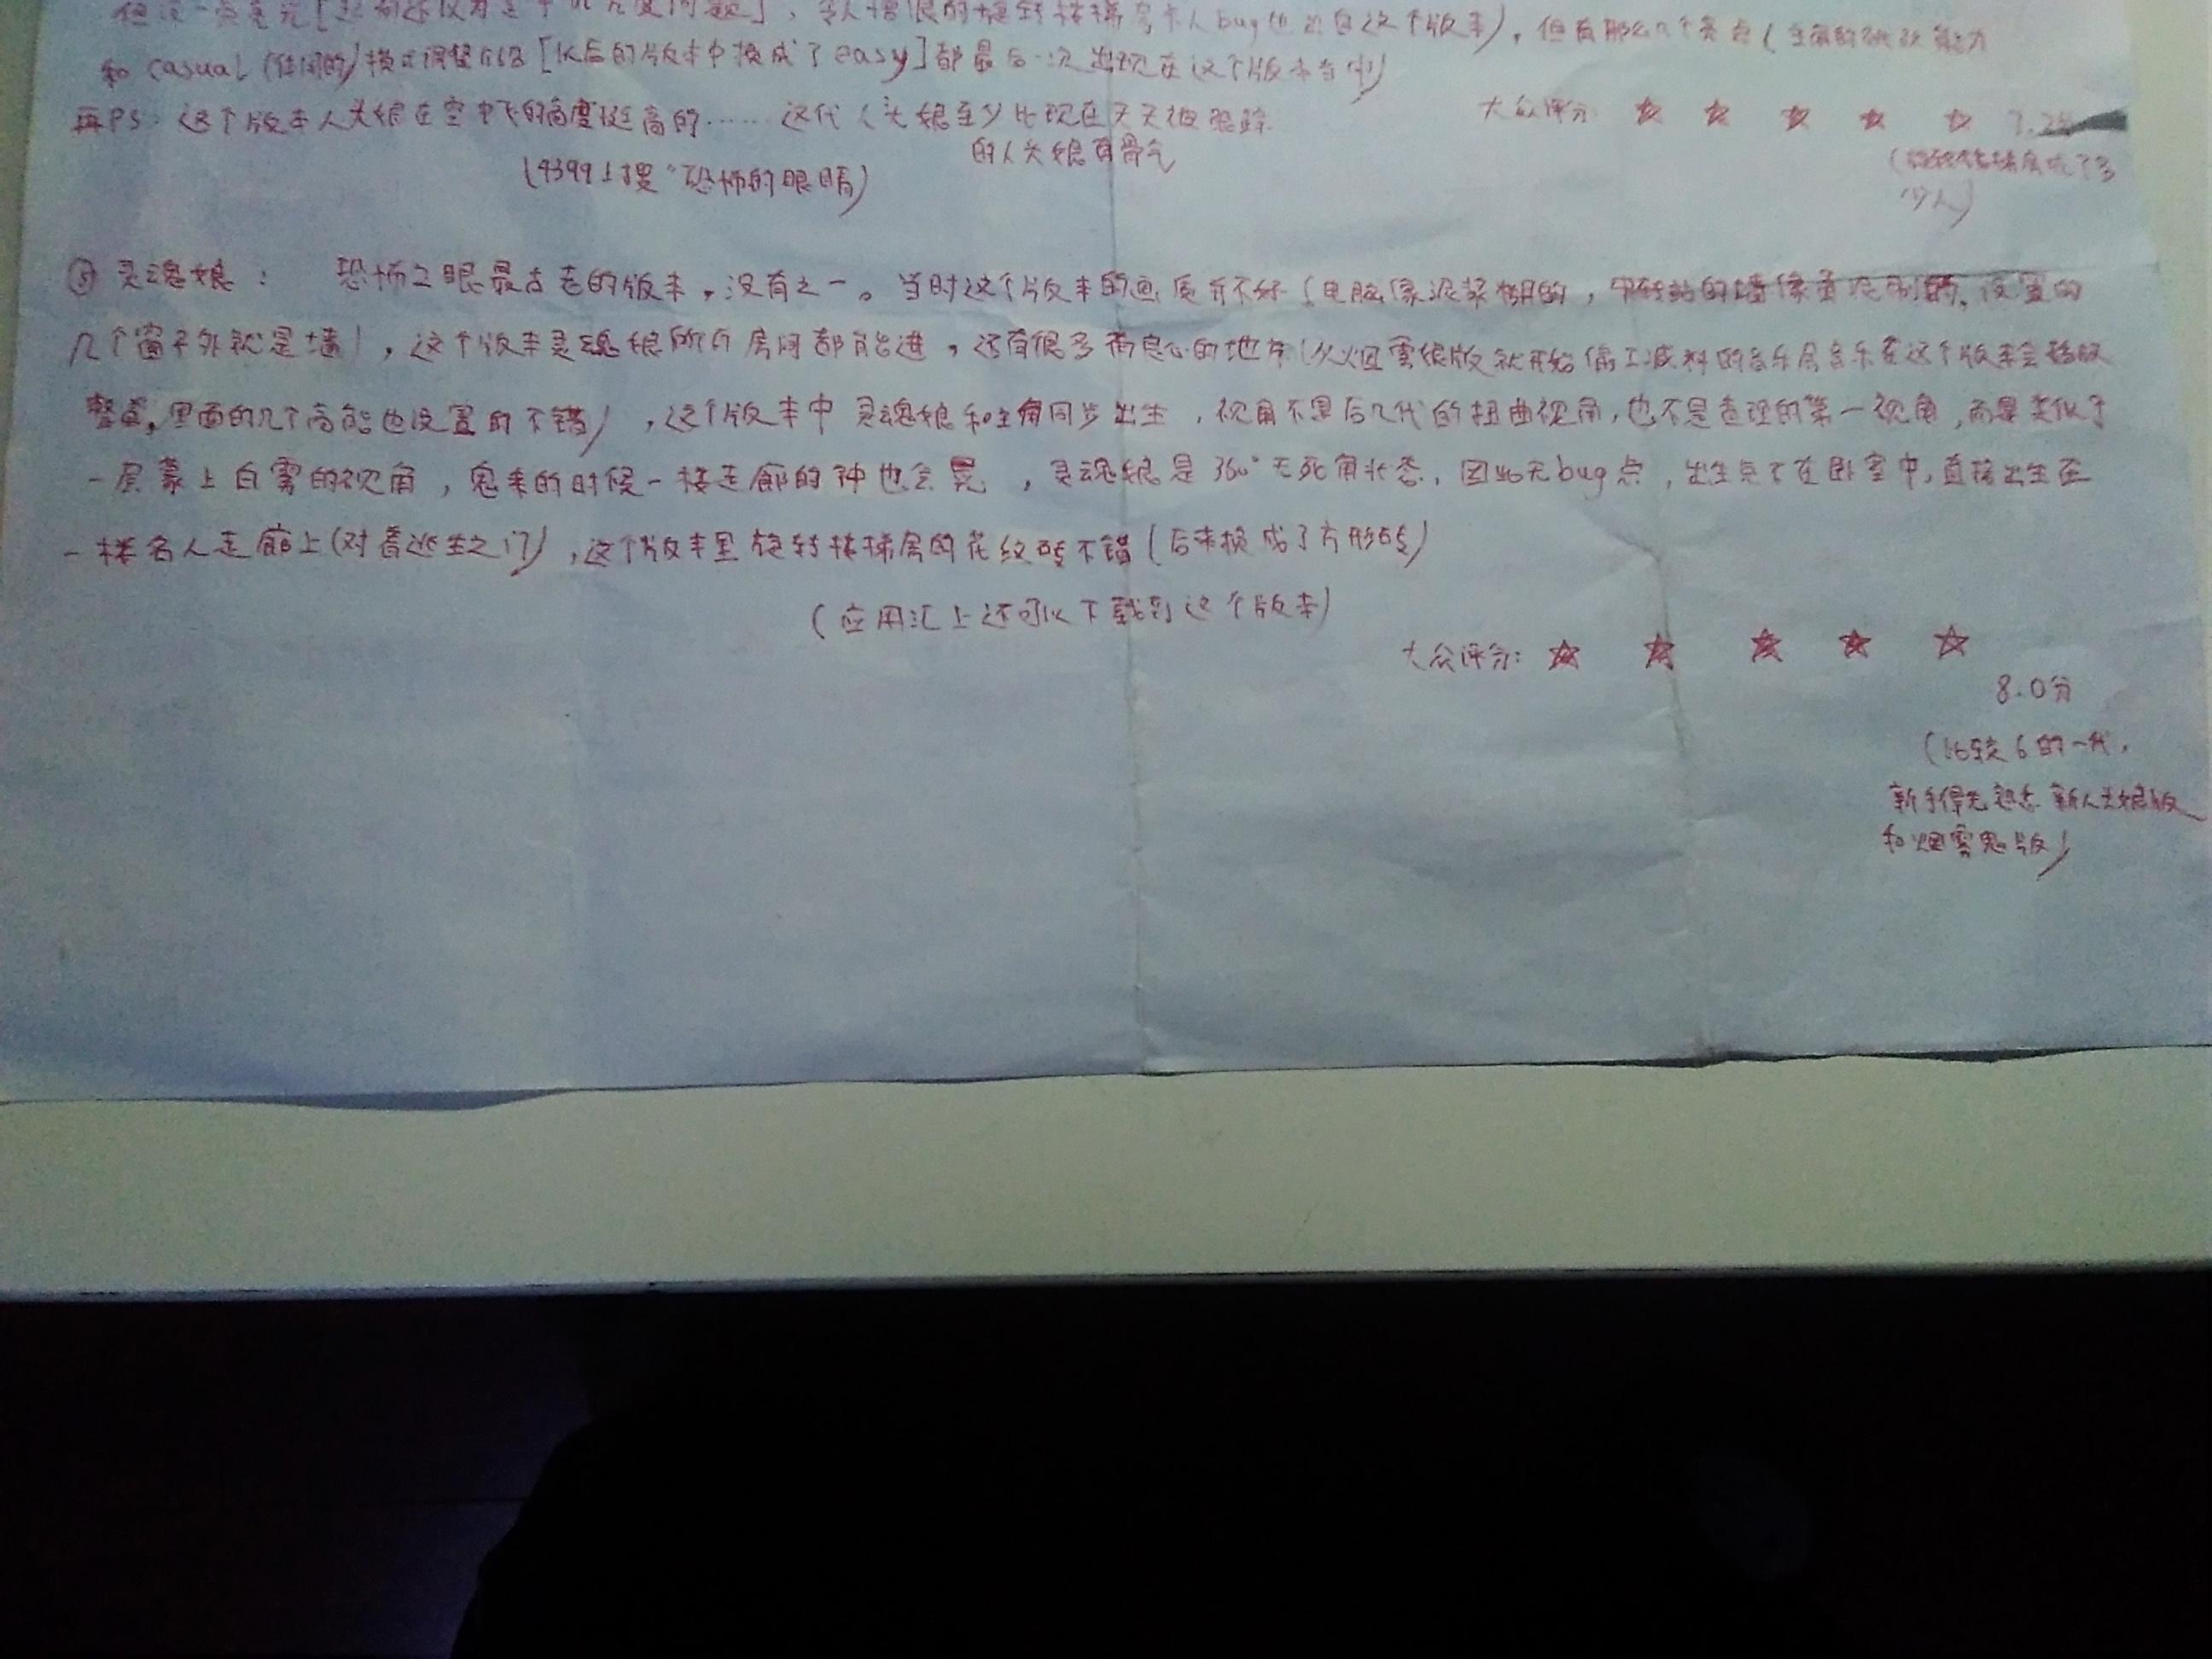 和casual(休闲的)模式调整 [以后的版本中换成了easy]都最后一次出现在这个版本当中)
再PS：这个版本人头娘在空中飞的高度挺高的……这代人头娘至少比现在天天被跟踪
的人头娘有骨气
大众评分：☆ ☆ ☆ ☆ ☆
(4399上搜“恐怖的眼睛)
少人)
灵魂娘： 恐怖之眼最古老的版本，没有之一。当时这个版本的画质并不好(电脑像泥浆糊的，中转站的墙像 设置的
几个窗子外就是墙)，这个版本灵魂娘所有房间都能进，还有很多 的地方(从烟雾娘版就开始偷工减料的音乐房音乐在这个版本会
整首，里面的几个高能也设置的不错)，这个版本中灵魂娘和主角同步出生，视角不是后几代的扭曲视角，也不是查理的第一视角，而是类似于
一层蒙上白雾的视角，鬼来的时候一楼走廊的钟也会晃，灵魂娘是360°无死角状态，因此无bug点，出生点不在卧室中，直接出生在
一楼名人走廊上(对着逃生之门)，这个版本里旋转楼梯房的花纹砖不错(后来换成了方形砖)
(应用汇上还可以下载到这个版本)
大众评分：☆ ☆ ☆ ☆ ☆
8.0分
(比较6的一代，
新手得先熟悉新人头娘版
和烟雾鬼版)